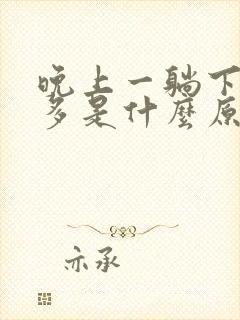 晚上一躺下
多是什麼原
亦承